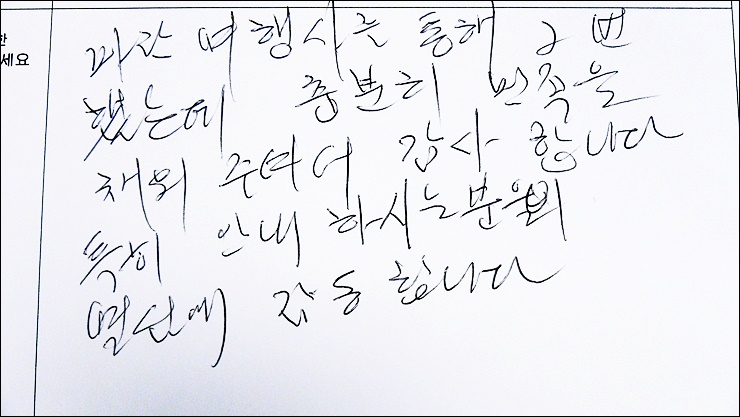 한
세요
마간 여행사를 통해 2번
했는데 충분히 만족을
채워 주여서 감사 합니다
특히 안내 하시는분의
열성에 감동 합니다